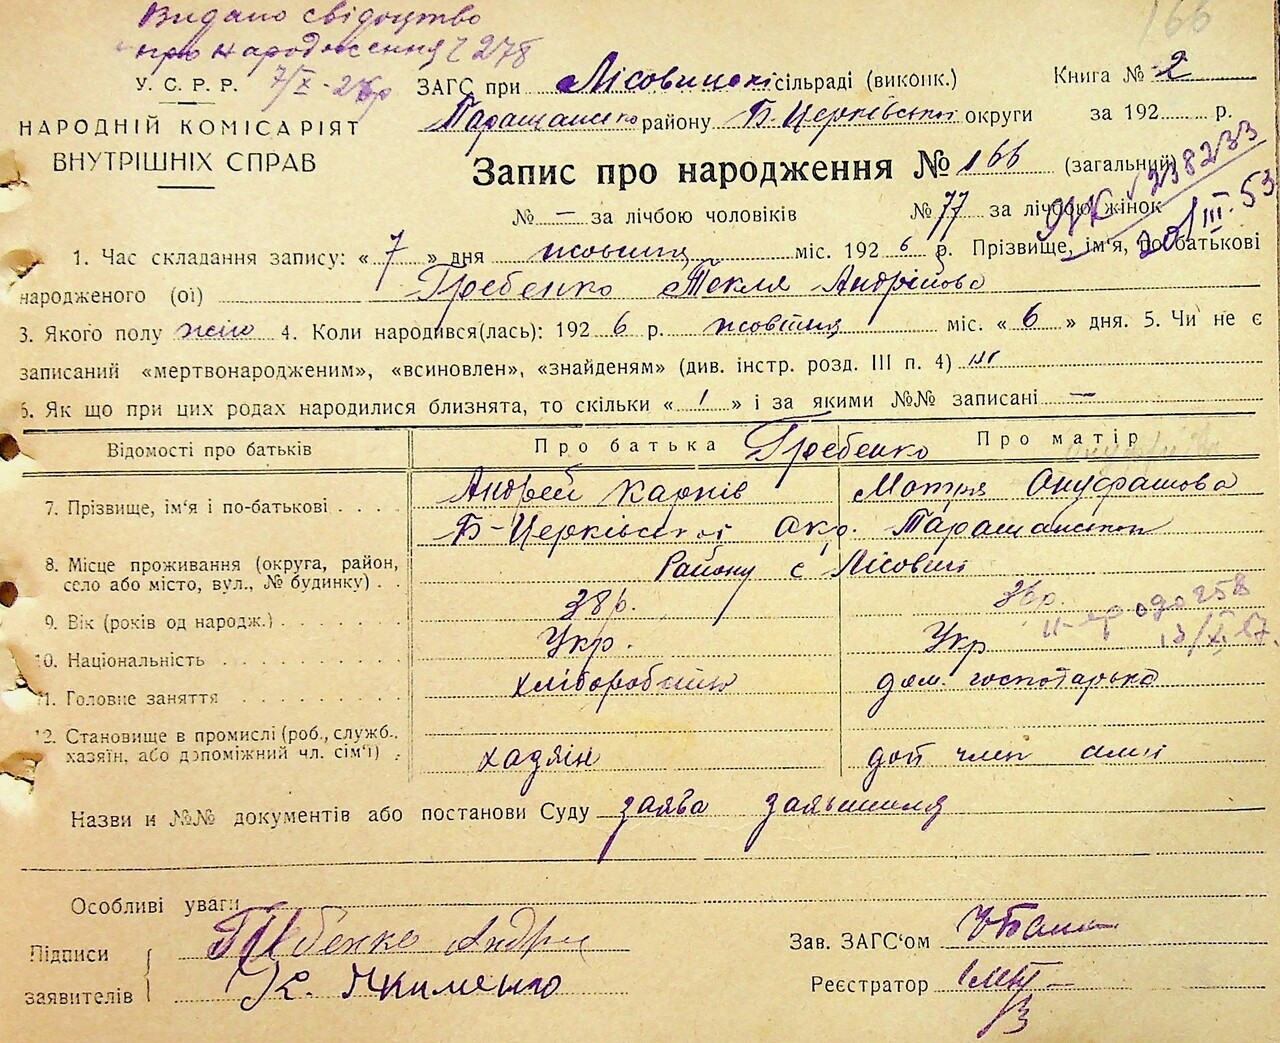 166
Видано свідоцтво
про народження Ч 278
7/X-26р
У. С. Р. Р.
НАРОДНІЙ КОМІСАРІЯТ
ВНУТРІШНІХ СПРАВ
ЗАГС при Лісовицькі сільраді (виконк.) Книга № 2
Таращанско району Б. Церківської округи за 192 р.
Запис про народження № 166 (загальний)
238233
20/III-53
№ — за лічбою чоловіків № 77 за лічбою жінок
1. Час складання запису: « 7 » дня жовтня міс. 192 6 р. Прізвище, ім'я, по-батькові
народженого (ої) Гребенко Текля Андрійова
3. Якого полу жін 4. Коли народився(лась): 192 6 р. жовтня міс. « 6 » дня. 5. Чи не є
записаний «мертвонародженим», «всиновлен», «знайденям» (див. інстр. розд. III п. 4) ні
6. Як що при цих родах народилися близнята, то скільки « 1 » і за якими №№ записані —
Відомості про батьків Про батька Гребенко Про матір
7. Прізвище, ім'я і по-батькові Андрей Карпів Мотря Онуфрашова
Б-Церківської Окр. Таращанської
8. Місце проживання (округа, район, село або місто, вул., № будинку) Району с Лісовичі
9. Вік (років од народж.) 38р. 36р.
10. Національність Укр. Укр
13/XI, 47
11. Головне заняття хліборобство дом. господарька
12. Становище в промислі (роб., служб., хазяїн, або допоміжний чл. сім'ї) хадзяїн доп член сімі
Назви и №№ документів або постанови Суду заява
Особливі уваги
Підписи заявителів Гребенко Андрі
К. Якименко
Зав. ЗАГС'ом
Реєстратор